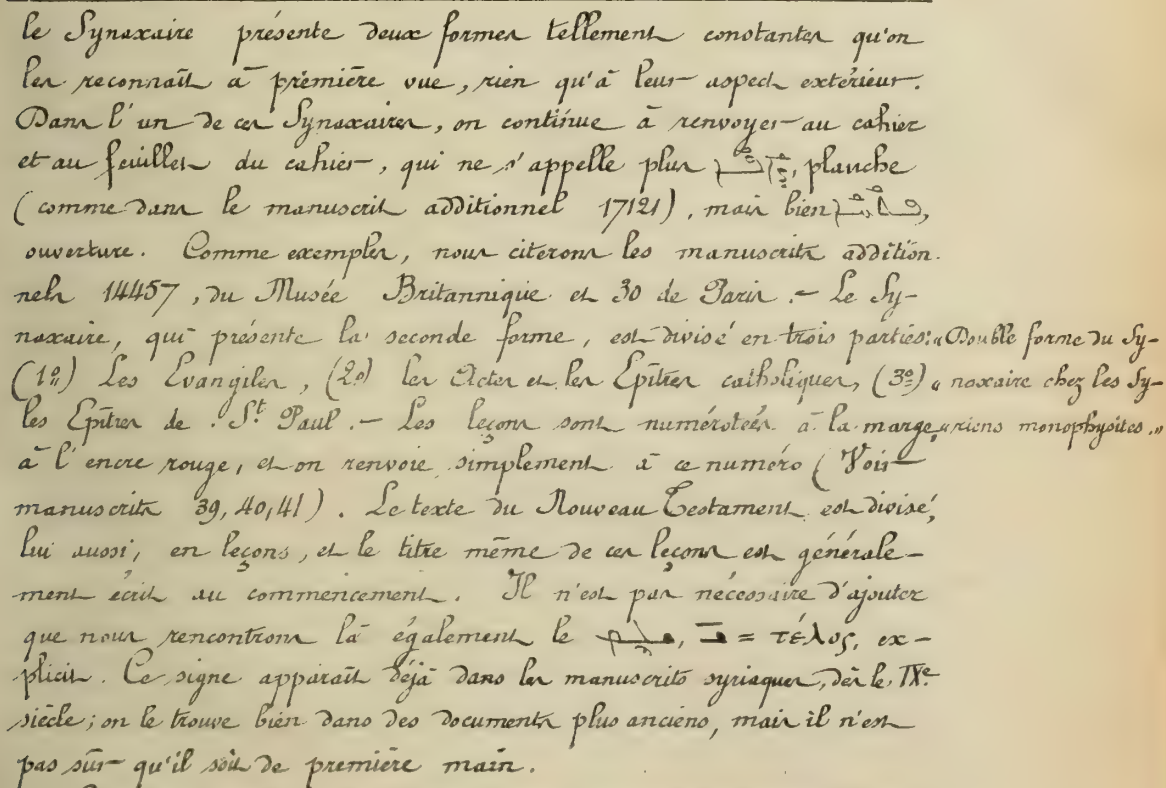 le Synaxaire présente deux formes tellement constantes qu'on
les reconnaît à première vue, rien qu'à leur aspect extérieur.
Dans l'un de ces Synaxaires, on continue à renvoyer au cahier
et au feuillet du cahier, qui ne s'appelle plus planche
(comme dans le manuscrit additionnel 17121), mais bien
ouverture. Comme exemples, nous citerons les manuscrits addition
nels 14457, du Musée Britannique et 30 de Paris. – Le Sy-
naxaire, qui présente la seconde forme, est divisé en trois parties:
(1º) Les Evangiles, (2º) les Actes et les Epîtres catholiques, (3º)
les Epîtres de St Paul. – Les leçons sont numérotées à la marge,
à l'encre rouge, et on renvoie simplement à ce numéro (Voir
manuscrits 39, 40, 41). Le texte du Nouveau Testament est divisé,
lui aussi, en leçons, et le titre même de ces leçons est générale-
ment écrit au commencement. Il n'est pas nécessaire d'ajouter
que nous rencontrons là également le = τέλος, ex-
plicit. Ce signe apparaît déjà dans les manuscrits syriaques, dès le IXe
siècle; on le trouve bien dans des documents plus anciens, mais il n'est
pas sûr qu'il soit de première main.
«Double forme du Sy-
« naxaire chez les Sy-
«riens monophysites.»